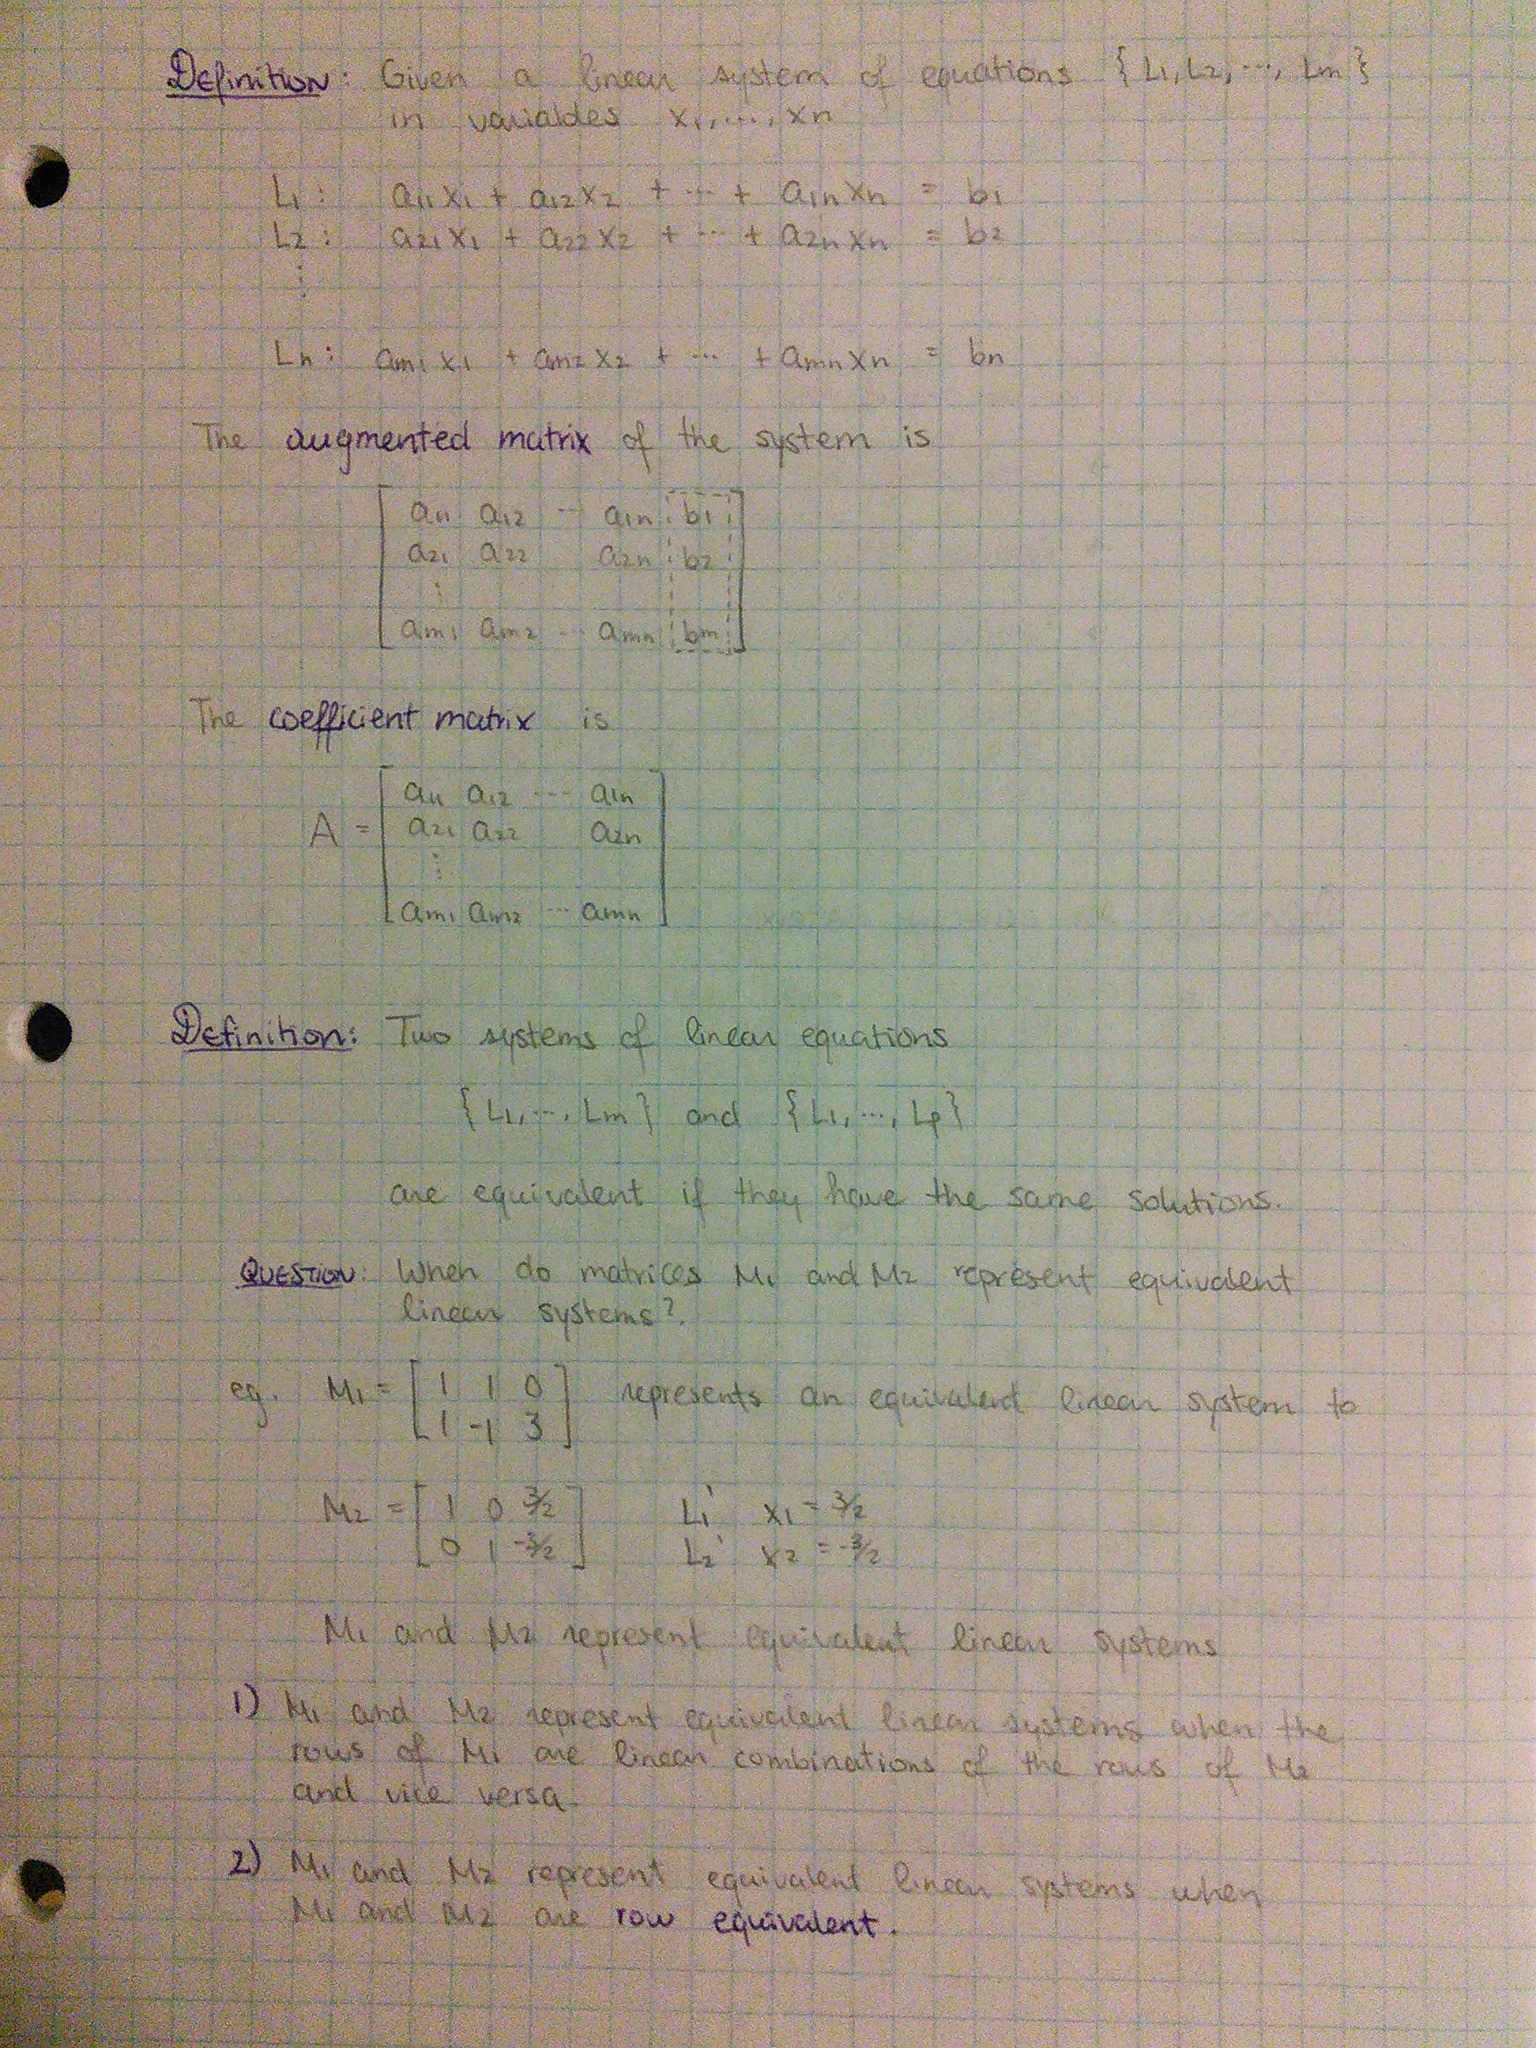 Definition: Given a linear system of equations {L1, L2, ..., Lm}
in variables x1, ..., xn
L1: a11x1 + a12x2 + ... + a1nxn = b1
L2: a21x1 + a22x2 + ... + a2nxn = b2
⋮
Ln: am1x1 + am2x2 + ... + amnxn = bn
The augmented matrix of the system is
a11 a12 ... a1n b1
a21 a22 a2n b2
⋮
am1 am2 ... amn bm
The coefficient matrix is
a11 a12 ... a1n
A = a21 a22 a2n
⋮
am1 am2 ... amn
Definition: Two systems of linear equations
{L1, ..., Lm} and {L1, ..., Lp}
are equivalent if they have the same solutions.
QUESTION: When do matrices M1 and M2 represent equivalent
linear systems?
eg. M1 = [1 1 0] represents an equivalent linear system to
[1 -1 3]
M2 = [1 0 3/2] L1' x1 = 3/2
[0 1 -3/2] L2' x2 = -3/2
M1 and M2 represent equivalent linear systems
1) M1 and M2 represent equivalent linear systems when the
rows of M1 are linear combinations of the rows of M2
and vice versa.
2) M1 and M2 represent equivalent linear systems when
M1 and M2 are row equivalent.